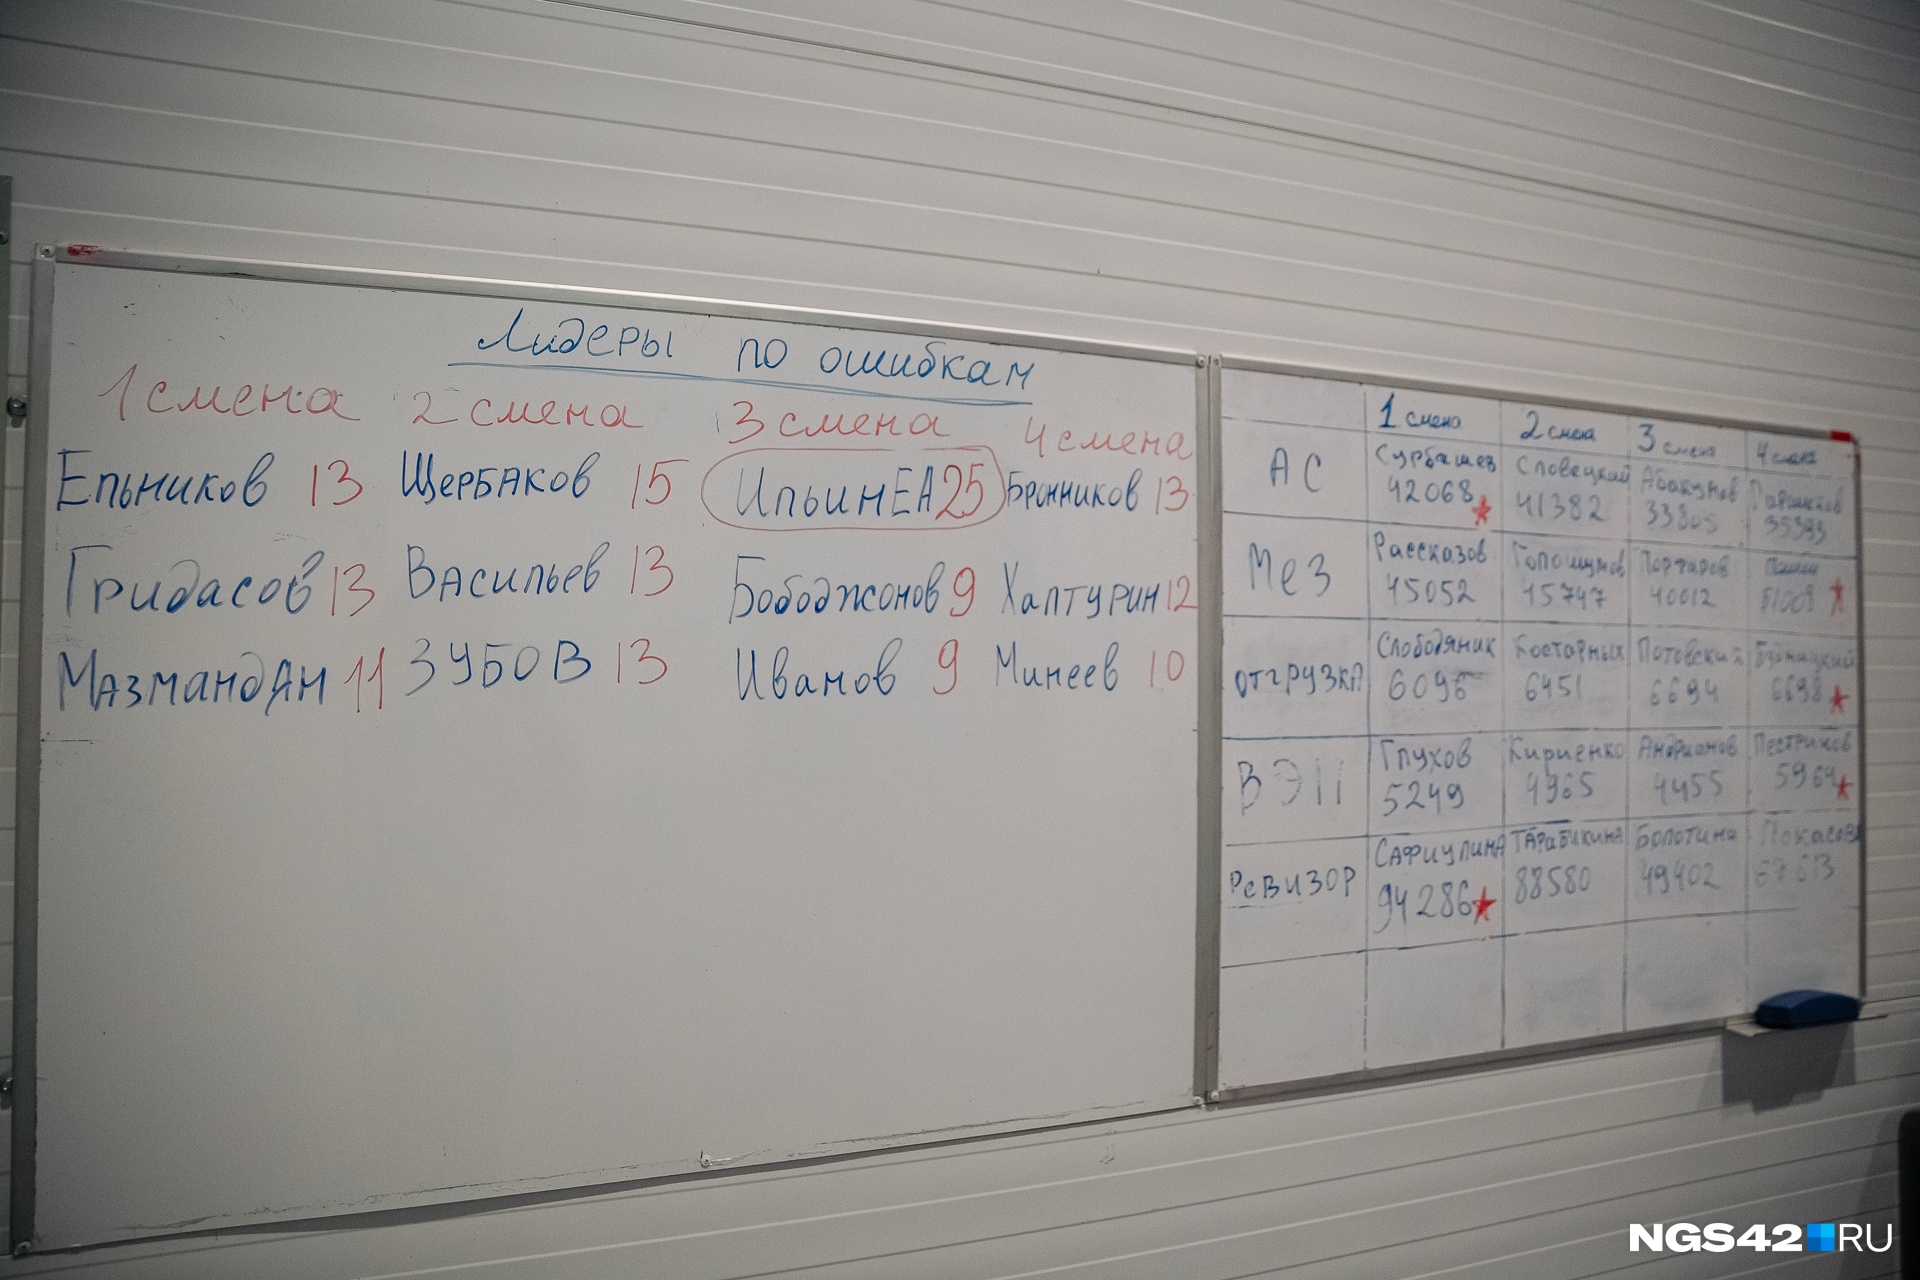 Лидеры по ошибкам
1 смена 2 смена 3 смена 4 смена
Ельников 13 Щербаков 15 Ильин ЕА 25 Бронников 13
Гридасов 13 Васильев 13 Бободжонов 9 Халтурин 12
Мазмандян 11 Зубов 13 Иванов 9 Минеев 10
1 смена 2 смена 3 смена 4 смена
АС Сурбашев Словецкий Абакумов
42068 41382 33805 35393
Мез Рассказов Голощумов Портаров
45052 45747 40012
отгрузка Слободяник Костарных Потовский
6095 6451 6694 6698
ВЭП Глухов Кириенко Андрианов Пестриков
5249 4965 4455 5964
Ревизор Сафиулина Тарабыкина Болотина
94286 88580 49402 67613
NGS42.RU